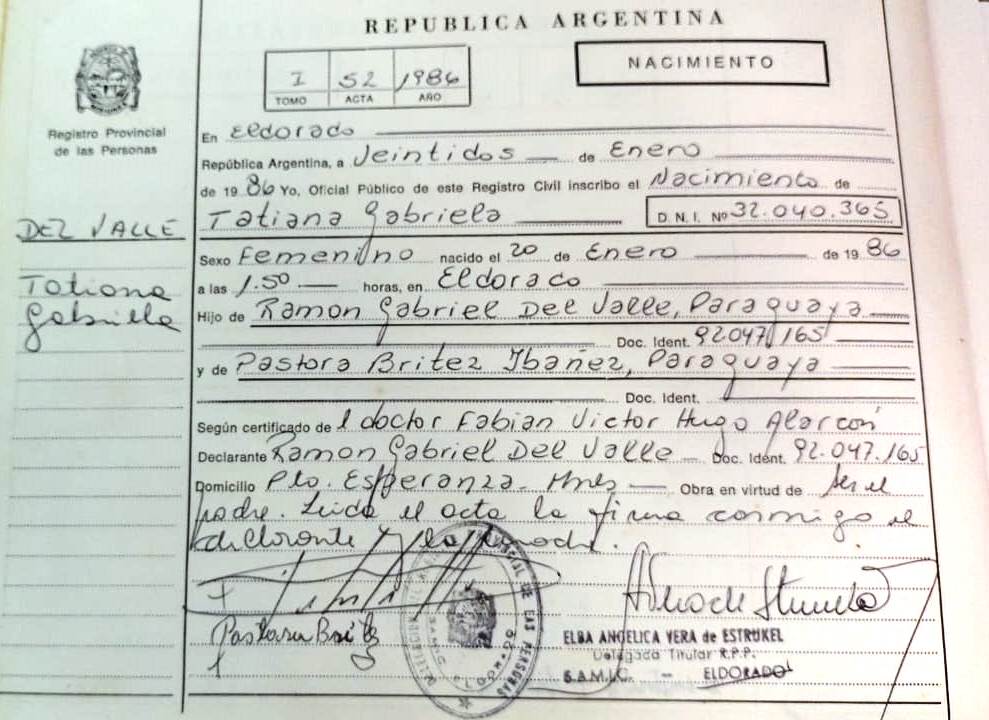 REPUBLICA ARGENTINA
Registro Provincial
de las Personas
I 52 1986
TOMO ACTA AÑO
NACIMIENTO
En Eldorado
República Argentina, a Veintidos de Enero
de 1986 Yo, Oficial Público de este Registro Civil inscribo el Nacimiento de
Tatiana Gabriela D. N. I. Nº 32.040.365
DEL VALLE
Tatiana
Gabriela
Sexo Femenino nacido el 20 de Enero de 1986
a las 1.50 horas, en Eldoraco
Hijo de Ramon Gabriel Del Valle, Paraguaya
Doc. Ident. 92047.165
y de Pastora Britez Ibañez, Paraguaya
Doc. Ident.
Según certificado de l doctor Fabian Victor Hugo Alarcón
Declarante Ramon Gabriel Del Valle Doc. Ident. 92.047.165
Domicilio Pto. Esperanza - Mnes Obra en virtud de ser el
padre. Leida el acta la firma conmigo el
declarante y la madre.
Pastora Britez
ELBA ANGELICA VERA de ESTRUKEL
Delegada Titular R.P.P.
S.A.M.I.C. - ELDORADO